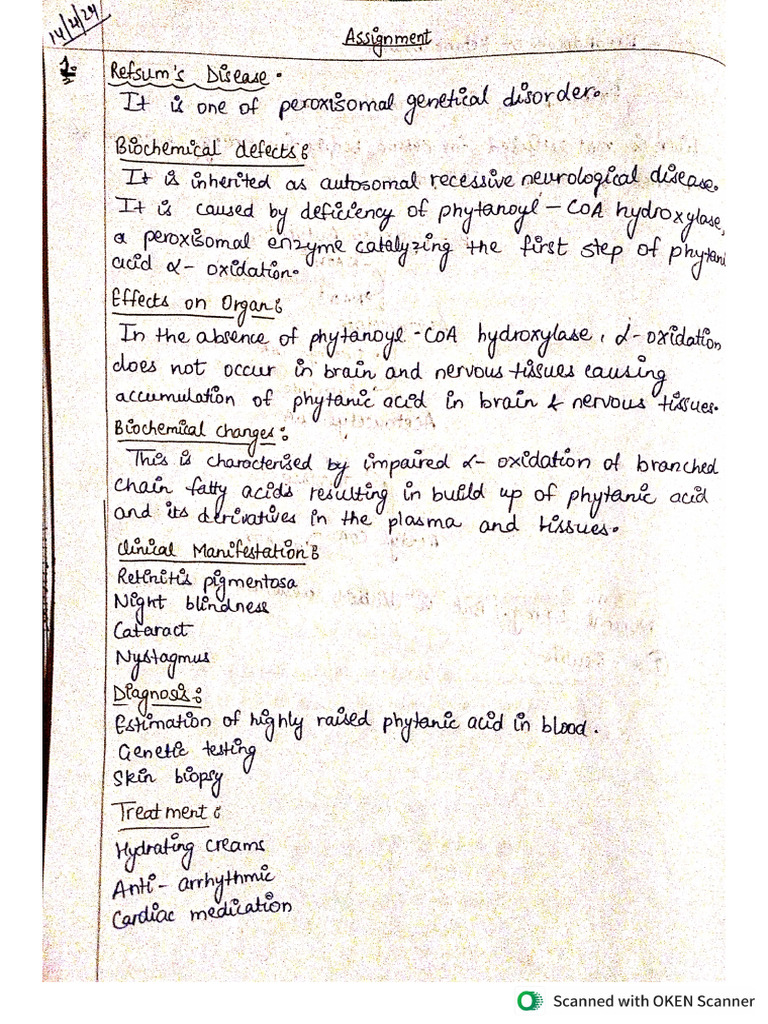 14/4/24
Assignment
1.
Refsum's Disease.
It is one of peroxisomal genetical disorder.
Biochemical defects:
It is inherited as autosomal recessive neurological disease.
It is caused by deficiency of phytanoyl-CoA hydroxylase,
a peroxisomal enzyme catalyzing the first step of phytani
acid α-oxidation.
Effects on Organ:
In the absence of phytanoyl-CoA hydroxylase, α-oxidation
does not occur in brain and nervous tissues causing
accumulation of phytanic acid in brain & nervous tissues.
Biochemical changes:
This is characterised by impaired α-oxidation of branched
chain fatty acids resulting in build up of phytanic acid
and its derivatives in the plasma and tissues.
Clinical Manifestation:
Retinitis pigmentosa
Night blindness
Cataract
Nystagmus
Diagnosis:
Estimation of highly raised phytanic acid in blood.
Genetic testing
Skin biopsy
Treatment:
Hydrating creams
Anti-arrhythmic
Cardiac medication
Scanned with OKEN Scanner